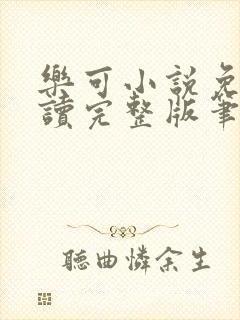 樂可小說免
讀完整版筆
聽曲憐余生